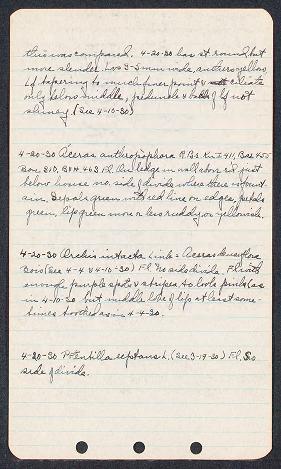 this was compared. 4-20-30 has st round, but
more slender. Lvs 3-5mm wide, anthers yellow,
Lf tapering to much finer point & ciliate
only below middle, peduncle & of lf not
slimy. (See 4-10-30)
4-20-30 Aceras anthropophora R.Br. Kn I 411, Bae 455
Bon 810, 463 Fl. On ledge in wall above just
below house no. side of divide where there is most
sun. Sepals green with red line on edges, petals
green, lip green more or less ruddy or yellowish.
4-20-30 Orchis intacta Link = Aceras densiflora
Boiss (See 4-4 & 4-10-30) Fl. no. side divide. Fl with
enough purple spots & stripes to look pink (as
in 4-10-30 but middle lobe of lip at least some-
times toothed as in 4-4-30.
4-20-30 Potentilla reptans L. (See 3-19-30) Fl. So
side of divide.